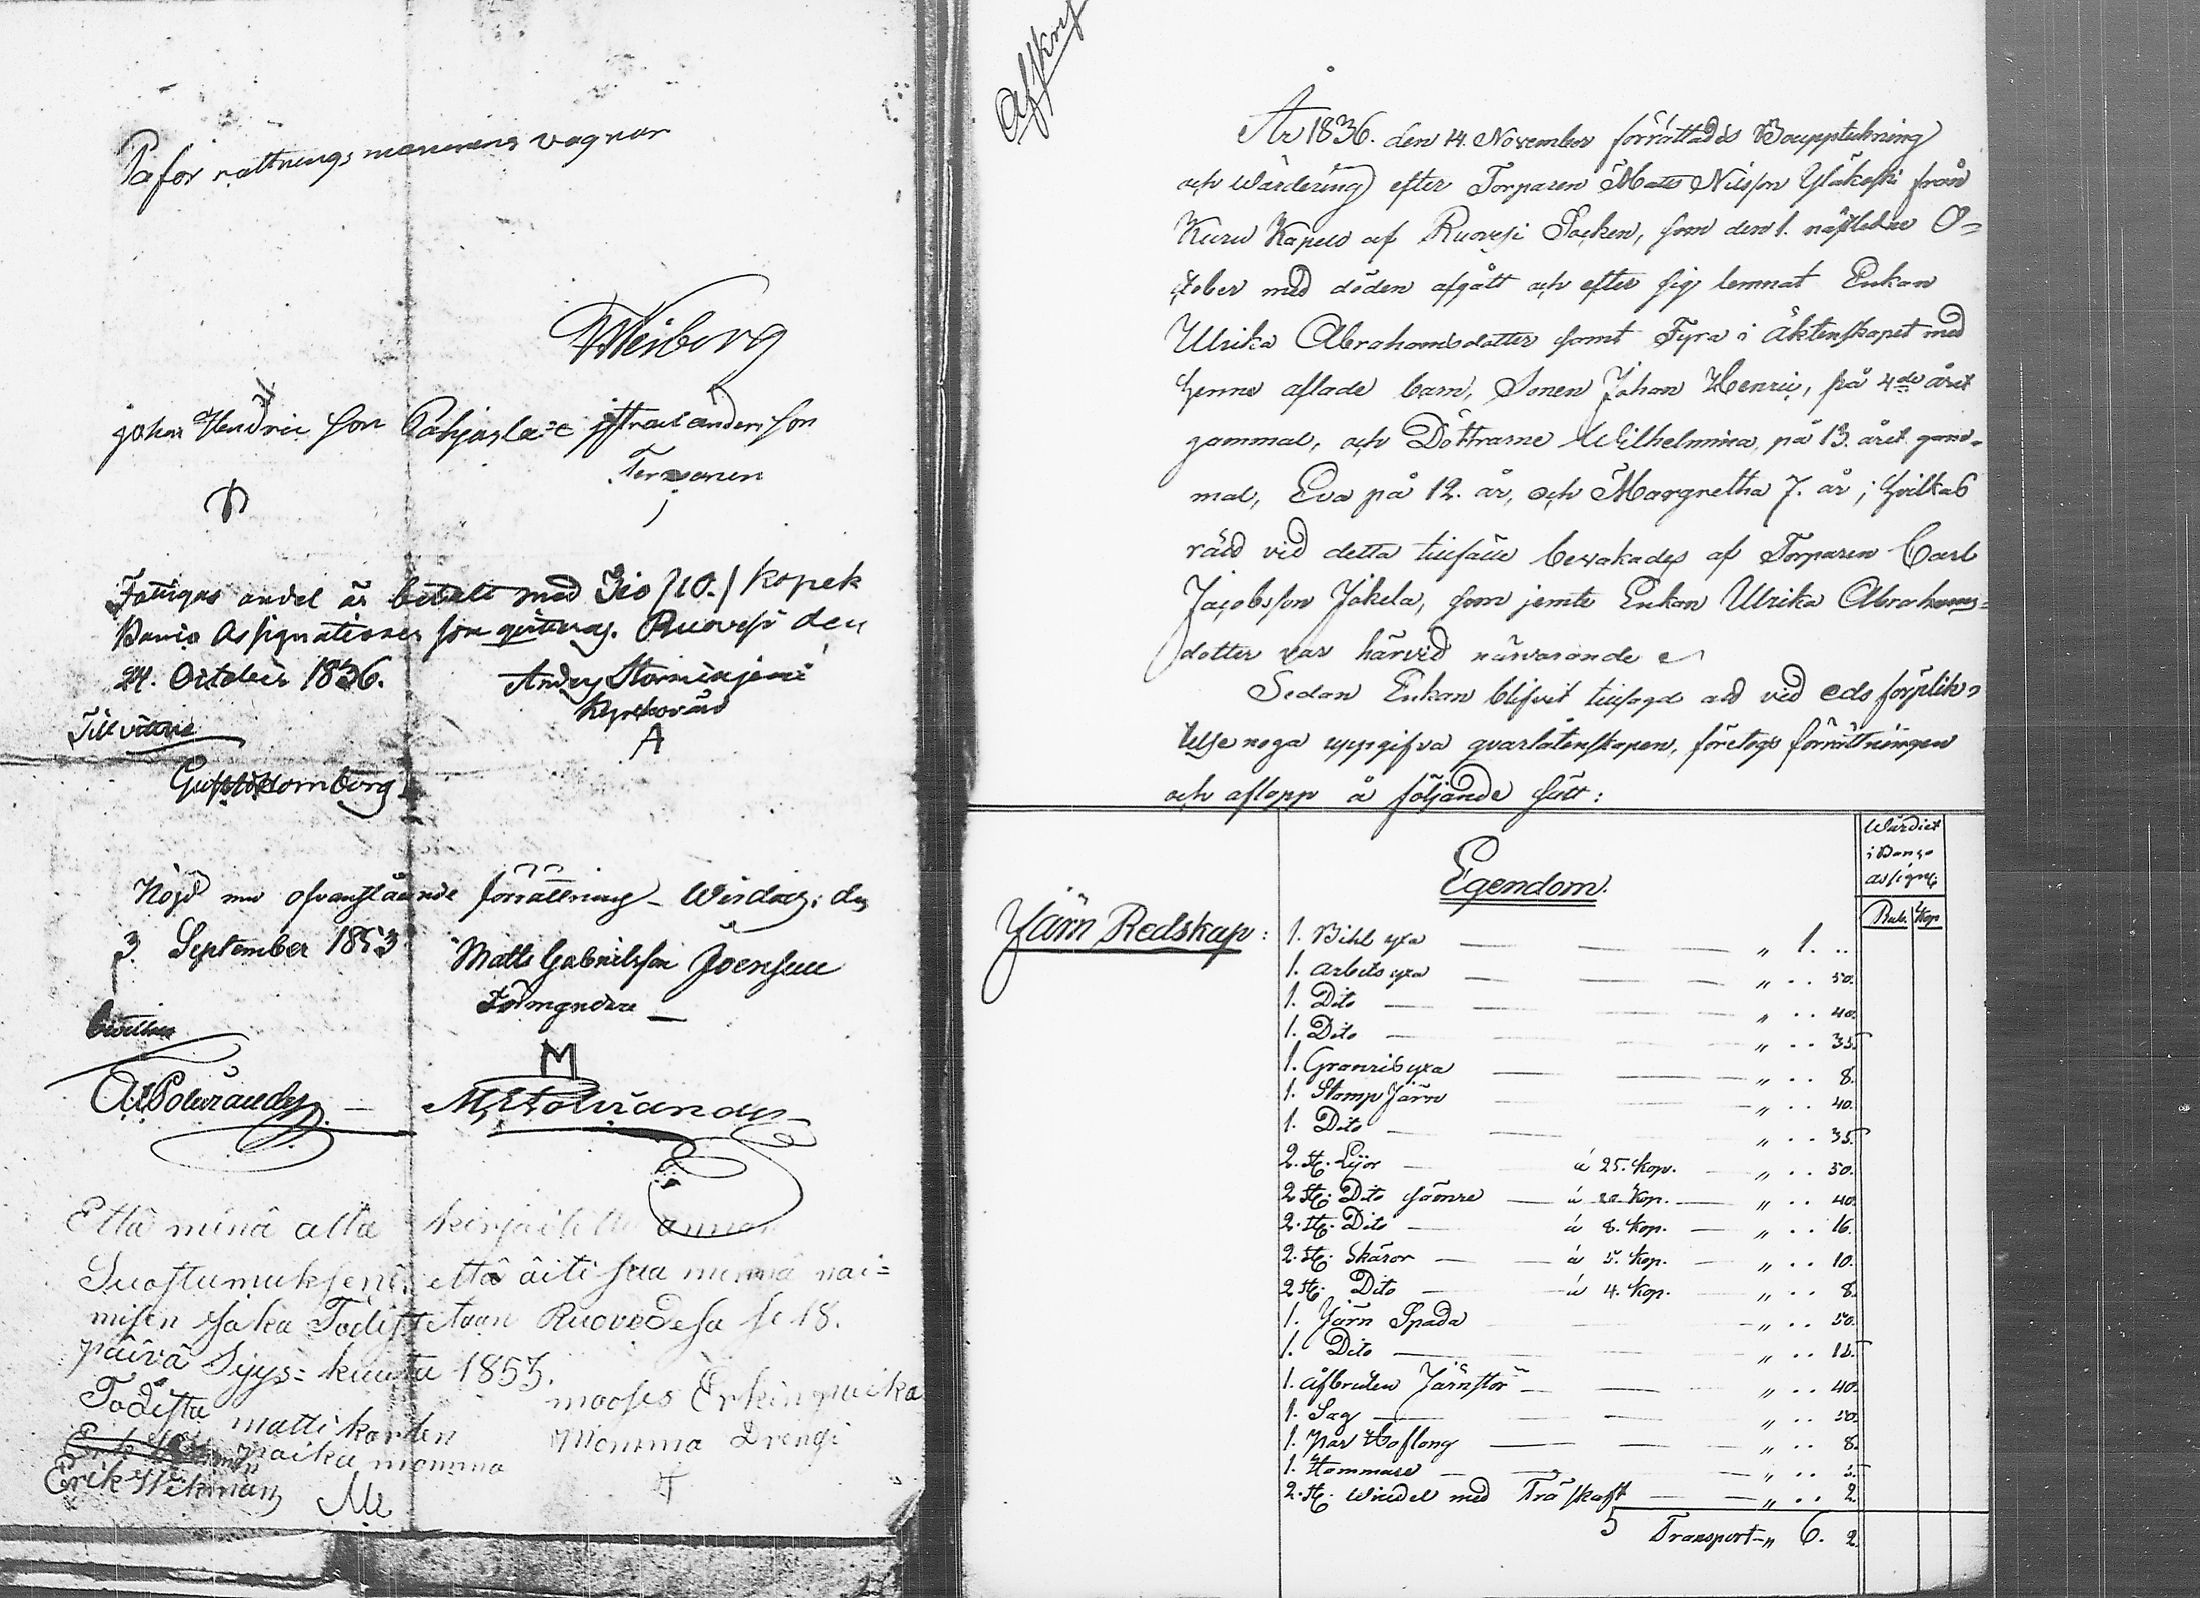 På förrättnings mannens vägnar
Johan Hendric son Pohjasla
Israel anderson
Fattigas andel är betalt med Tio /10./ kopek
Banco Assignationer som qvitteras. Ruovesi den
24. October 1836.
Kyrkovärd
A
Till vittne
Gust: Holmberg
Nöjd med ofvanstående förrättning Wirdois den
3 September 1853
Matts Gabrielsson Joensuu
Förmyndare
M
bevittna
Että minä alla kirjoitettu annan
Suostumukseni että äiti saa mennä nai=
misen joka Todistetaan Ruovedesä se 18.
päivä Syys=kuuta 1853.
Todista
matti korten
paika momma
mooses Erkinpoika
Momma Drengi
Erik Wekman
Afskrift
År 1836. den 14. November förrättades Bouppteckning
och Wärdering efter Torparen Mats Nilsson Yläkoski från
Kuru Kapell af Ruovesi Socken, som den 1. nästledne O=
ctober med döden afgått och efter sig lemnat Enkan
Ulrika Abrahamsdotter samt Fyra i äktenskapet med
henne aflade barn, Sonen Johan Henric, på 4de året
gammal, och Döttrarne Wilhelmina, på 13. året gam=
mal, Eva på 12. år, och Margretha 7. år; hvilkas
rätt vid detta tillfälle bevakades af Torparen Carl
Jacobsson Jäkelä, som jemte Enkan Ulrika Abrahams=
dotter var härvid närvarande
Sedan Enkan blifvit tillsagd att vid eds förplik=
telse noga uppgifva qvarlåtenskapen, företogs förrättningen
och aflopp å följande sätt:
Egendom.
Wärdiet
i Banco
assign:
Rub. Kop
Järn Redskap:
1. Bihl yxa „ 1. ..
1. arbets yxa „ .. 50.
1. Dito „ .. 40.
1. Dito „ .. 35.
1. Granris yxa „ .. 8.
1. Stamp Järn „ .. 40.
1. Dito „ .. 35.
2. st. Lijor á 25. kop. „ .. 50.
2 st. Dito sämre á 20 kop. „ .. 40.
2. st. Dito á 8. kop. „ .. 16.
2. st. Skäror á 5. kop. „ .. 10.
2 st. Dito á 4. kop. „ .. 8.
1. Järn Spada „ .. 50.
1. Dito „ .. 15.
1. afbruten Järnstör „ .. 40.
1. Sag „ .. 50.
1. par Hoftong „ .. 8.
1. Hammare „ .. 5.
2. st. med Träskaft „ .. 2.
Transport „ 6. 2.